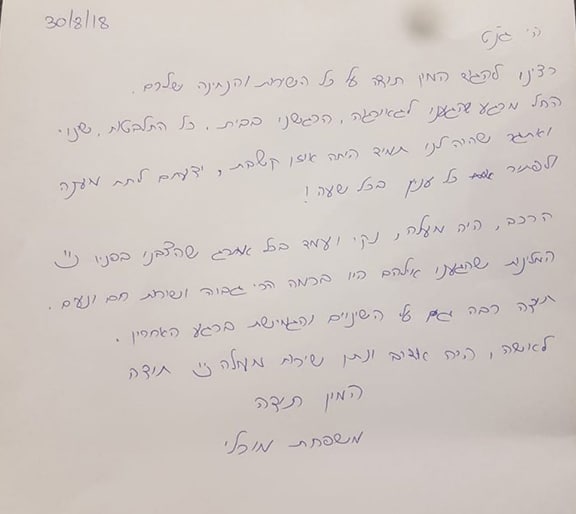 30/8/18
הי ג'נט
רצינו להגיד המון תודה על כל השירות והנתינה שלכם.
החל מרגע שהגענו לגאורגיה, הרגשנו בבית. כל התלבטות, שינוי
ואתגר שהיה לנו תמיד היתה אוזן קשבת, ידעתם לתת מענה
ולפתור כל עניין בכל שעה!
הרכב, היה מעולה, נקי ועמד בכל אתגר שהצבנו בפניו
המלונות שהגענו אליהם היו ברמה הכי גבוהה ושירות חם ונעים.
תודה רבה גם על השינויים והגמישות ברגע האחרון.
היה אדיב ונתן שירות מעולה תודה
המון תודה
משפחת